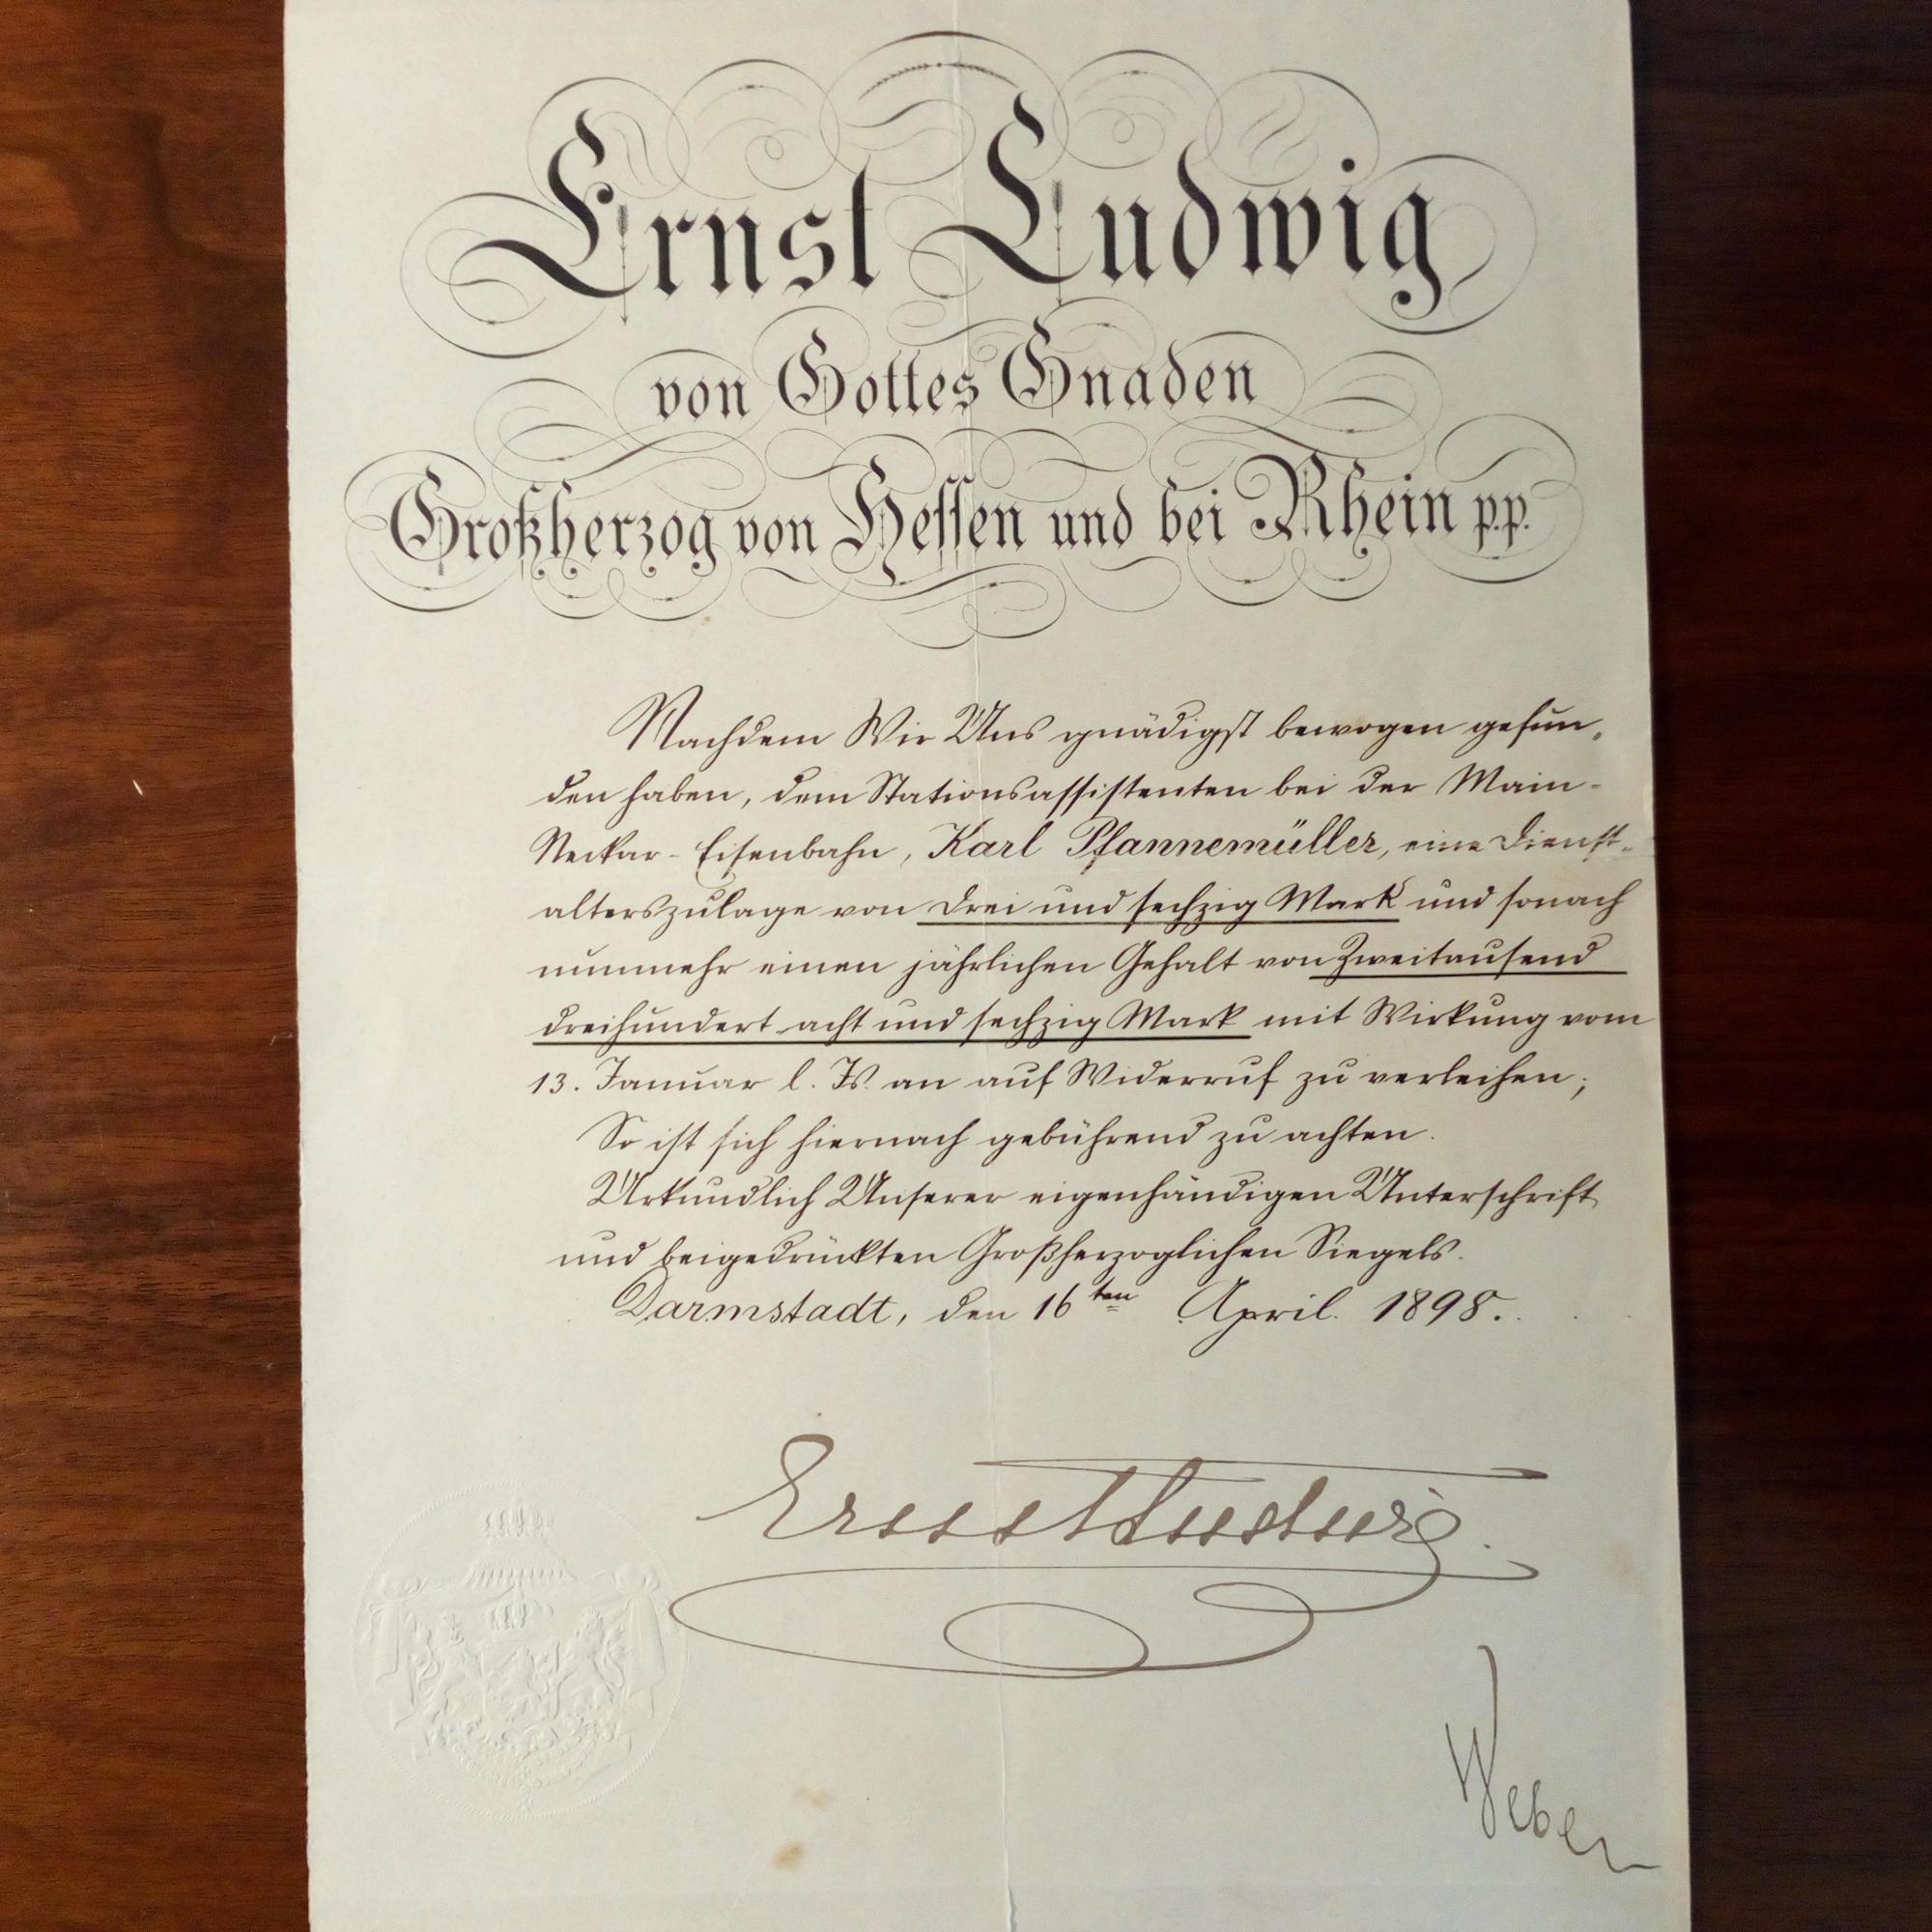 Ernst Ludwig
von Gottes Gnaden
Großherzog von Hessen und bei Rhein p.p.
Nachdem Wir Uns gnädigst bewogen gefun-
den haben, dem Stationsassistenten bei der Main-
Neckar-Eisenbahn, Karl Pfannemüller, eine Dienst-
alterszulage von Drei und sechzig Mark und sonach
nunmehr einen jährlichen Gehalt von Zweitausend
dreihundert acht und sechzig Mark mit Wirkung vom
13. Januar l. Js. an auf Widerruf zu verleihen;
So ist sich hiernach gebührend zu achten.
Urkundlich Unserer eigenhändigen Unterschrift
und beigedrückten Großherzoglichen Siegels.
Darmstadt, den 16ten April 1898.
Ernst Ludwig.
Weber